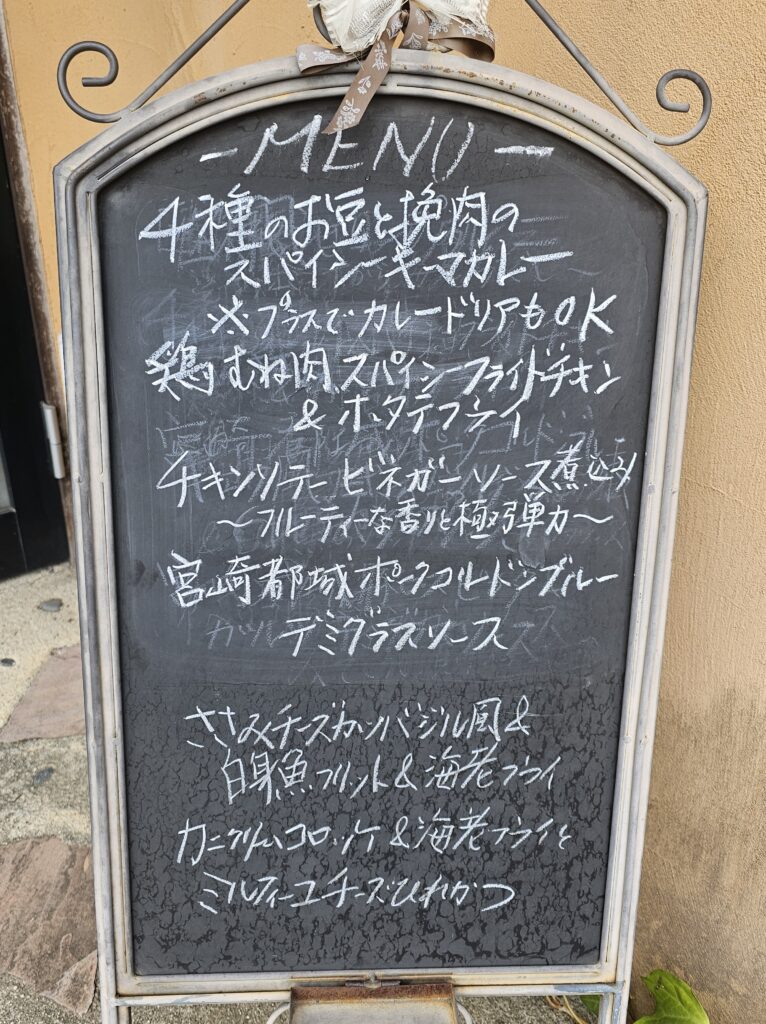 -MENU-
4種のお豆と挽肉の
スパイシーキーマカレー
※プラスでカレードリアもOK
鶏むね肉スパイシーフライドチキン
&ホタテフライ
チキンソテービネガーソース煮込み
〜フルーティーな香りと極弾力〜
宮崎都城ポークコルドンブルー
デミグラスソース
ささみチーズカツバジル風&
白身魚フリット&海老フライ
カニクリームコロッケ&海老フライと
ミルフィーユチーズひれかつ